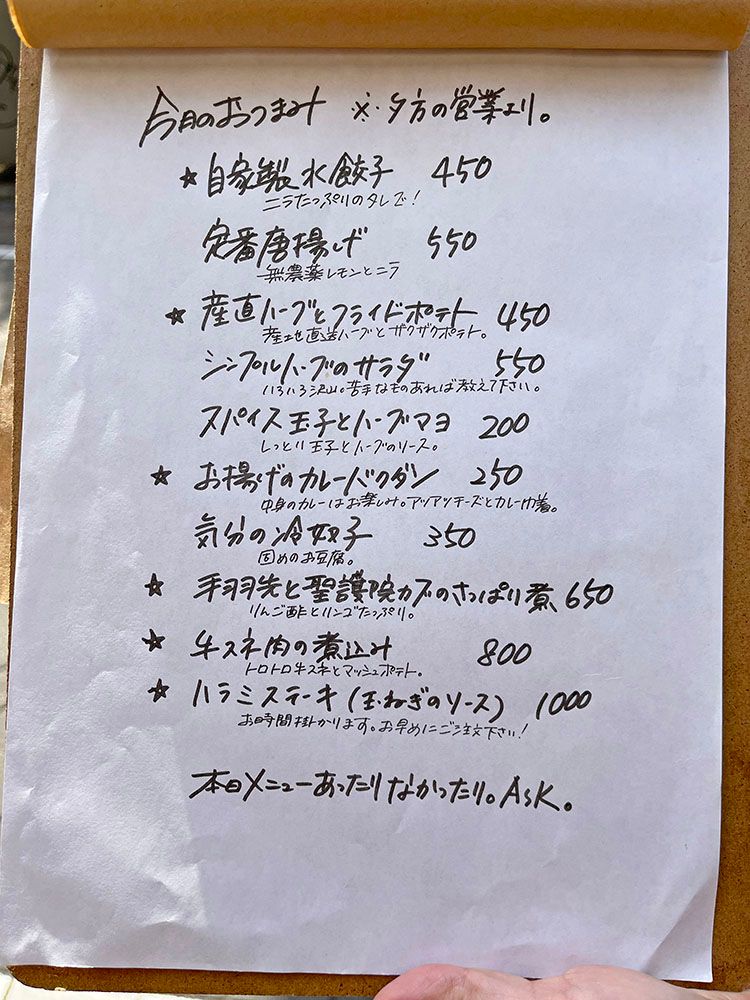 今月のおつまみ ※夕方の営業より。
☆自家製水餃子 450
ニラたっぷりのタレで!
定番唐揚げ 550
無農薬レモンとニラ
☆産直ハーブとフライドポテト 450
産地直送ハーブとザクザクポテト。
シンプルハーブのサラダ 550
いろいろ沢山。苦手なものあれば教えて下さい。
スパイス玉子とハーブマヨ 200
しっとり玉子とハーブのソース。
☆お揚げのカレーバクダン 250
中身のカレーはお楽しみ。アツアツチーズとカレー巾着。
気分の冷奴子 350
固めのお豆腐。
☆手羽先と聖護院カブのさっぱり煮 650
りんご酢とリンゴたっぷり。
☆牛スネ肉の煮込み 800
トロトロ牛スネとマッシュポテト。
☆ハラミステーキ(玉ねぎのソース) 1000
お時間掛かります。お早めにご注文下さい!
本日メニューあったりなかったり。ASK。